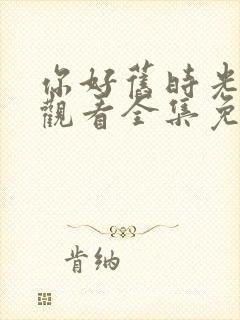 你好舊時光
觀看全集免
肯納